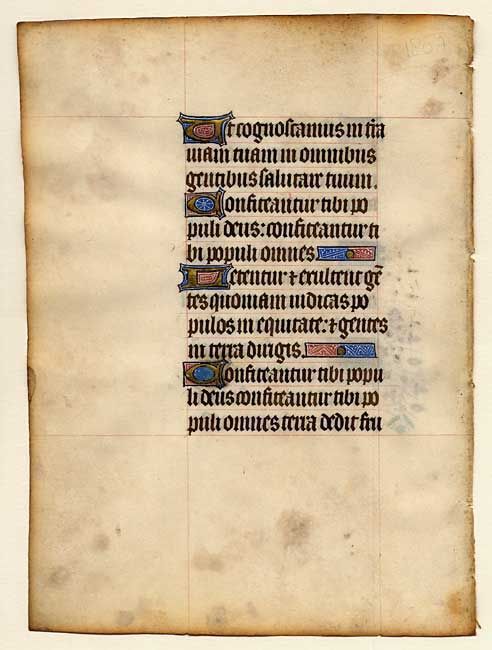 Ut cognoscamus in t̄ra
uiam tuam in omnibus
gentibus salutare tuum.
Confiteantur tibi po
puli deus: confiteantur ti
bi populi omnes
Letentur ⁊ exultent gē
tes quoniam iudicas po
pulos in equitate: ⁊ gentes
in terra dirigis.
Confiteantur tibi popu
li deus confiteantur tibi po
puli omnes terra dedit fru